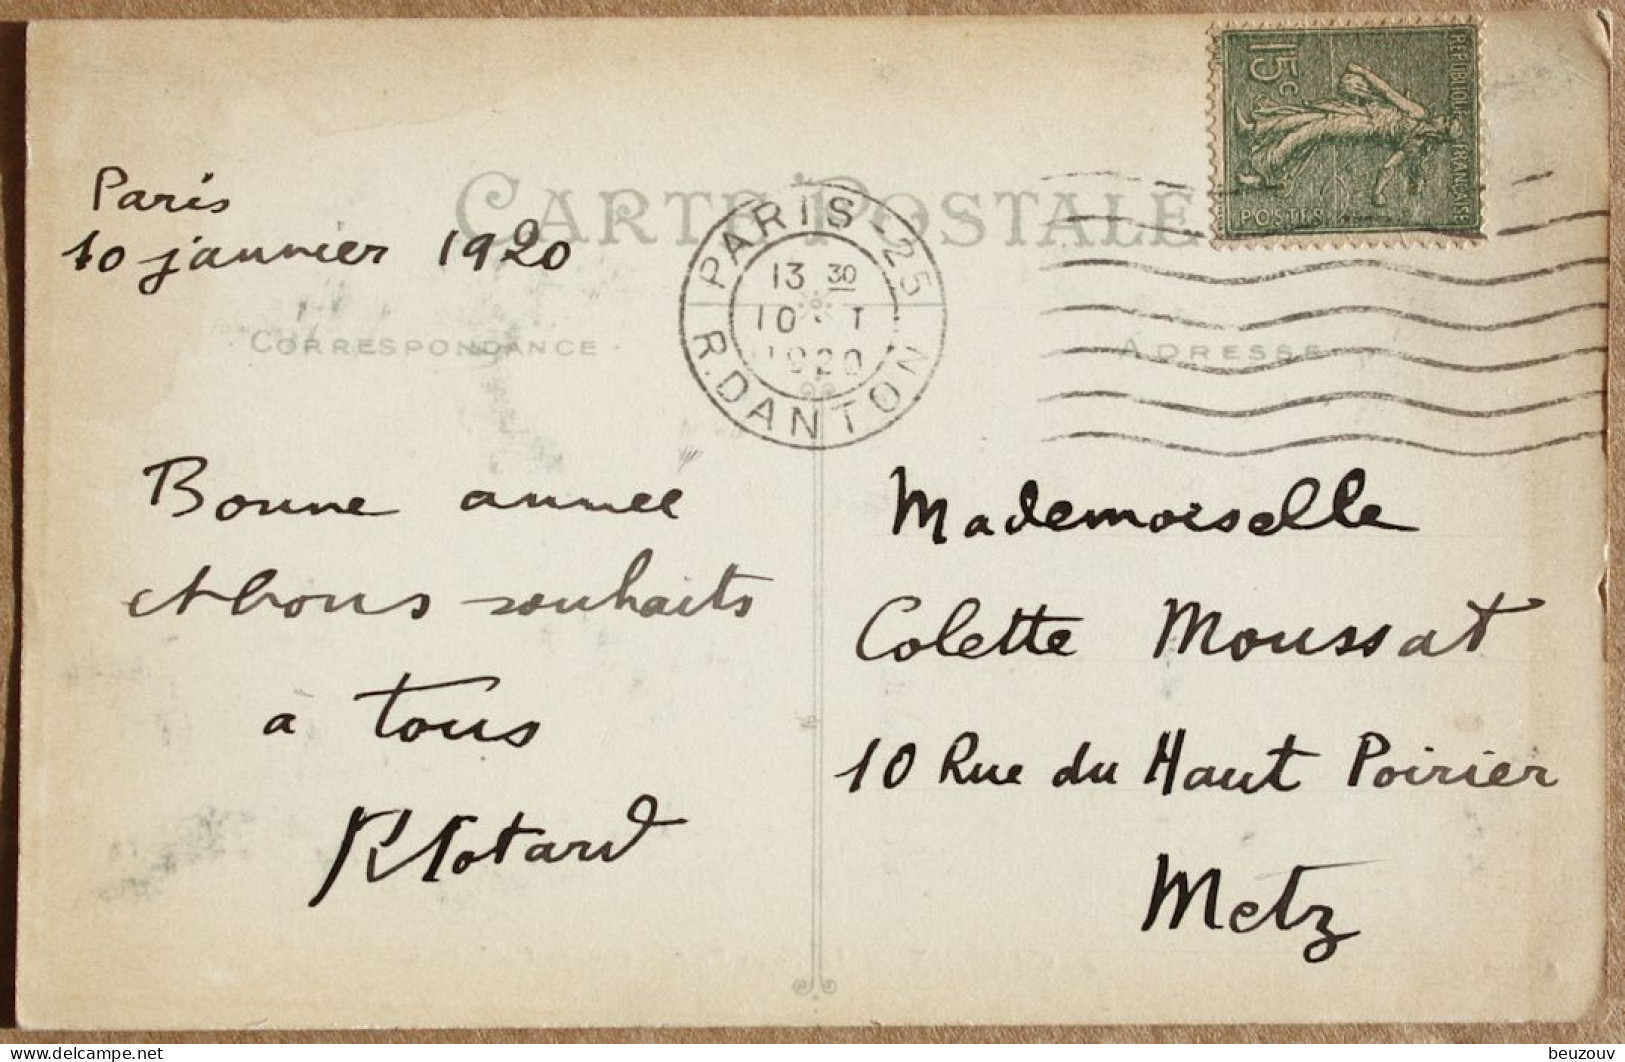 CARTE POSTALE
RÉPUBLIQUE FRANÇAISE
15c
POSTES
PARIS-25
13 30
10 - I
1920
R. DANTON
Paris
10 janvier 1920
CORRESPONDANCE
ADRESSE
Bonne année
et bons souhaits
à tous
Mademoiselle
Colette Moussat
10 Rue du Haut Poirier
Metz
delcampe.net
beuzouv